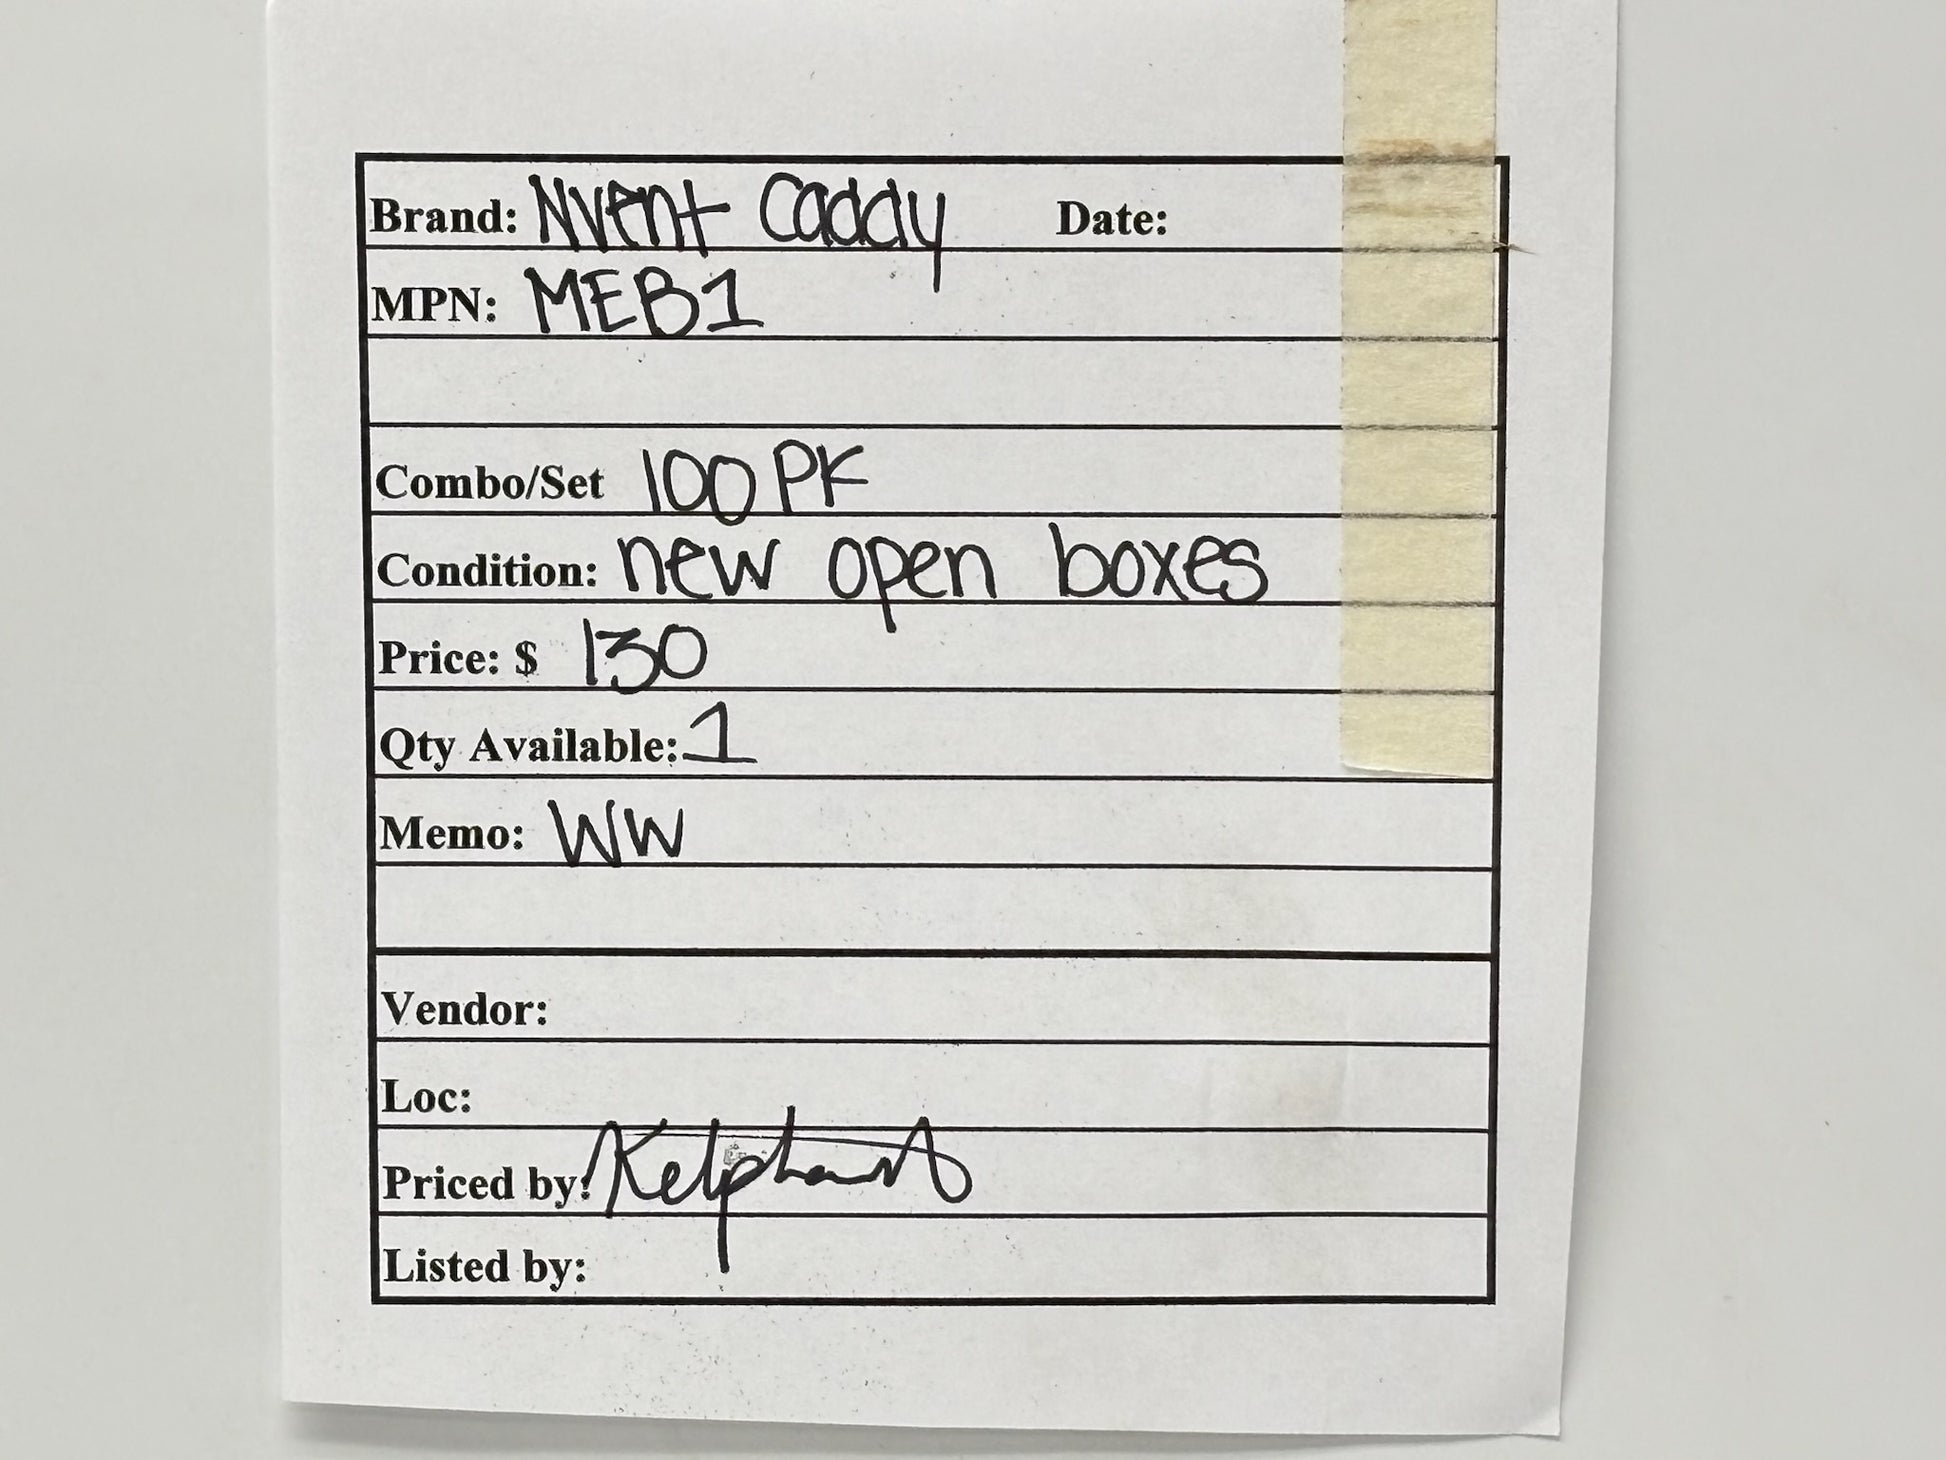 Brand: Nvent Caddy Date:
MPN: MEB1
Combo/Set 100 PK
Condition: new open boxes
Price: $ 130
Qty Available: 1
Memo: WW
Vendor:
Loc:
Priced by:
Listed by: